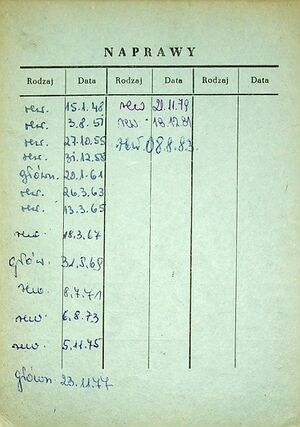 NAPRAWY
Rodzaj Data Rodzaj Data Rodzaj Data
rew. 15.1.48 rew 21.11.79
rew. 3.8.51 rew. 18.12.81
rew. 27.10.55 rew. 08.8.83.
rew. 31.12.58
główn. 20.1.61
rew. 26.3.63
rew. 13.3.65
rew. 18.3.67
głów. 31.8.69
rew 8.7.71
rew 6.8.73
rew. 5.11.75
główn 23.11.77